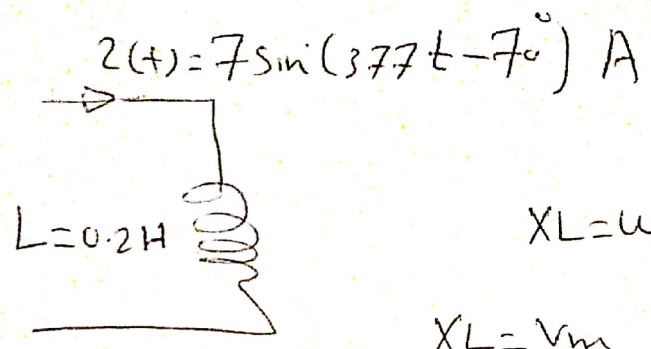 2(t)=7sin(377t-70°) A
L=0.2H
XL=w
XL=Vm